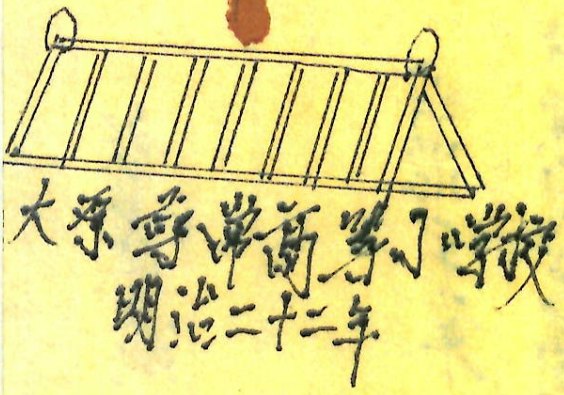 大原尋常高等小学校
明治二十二年